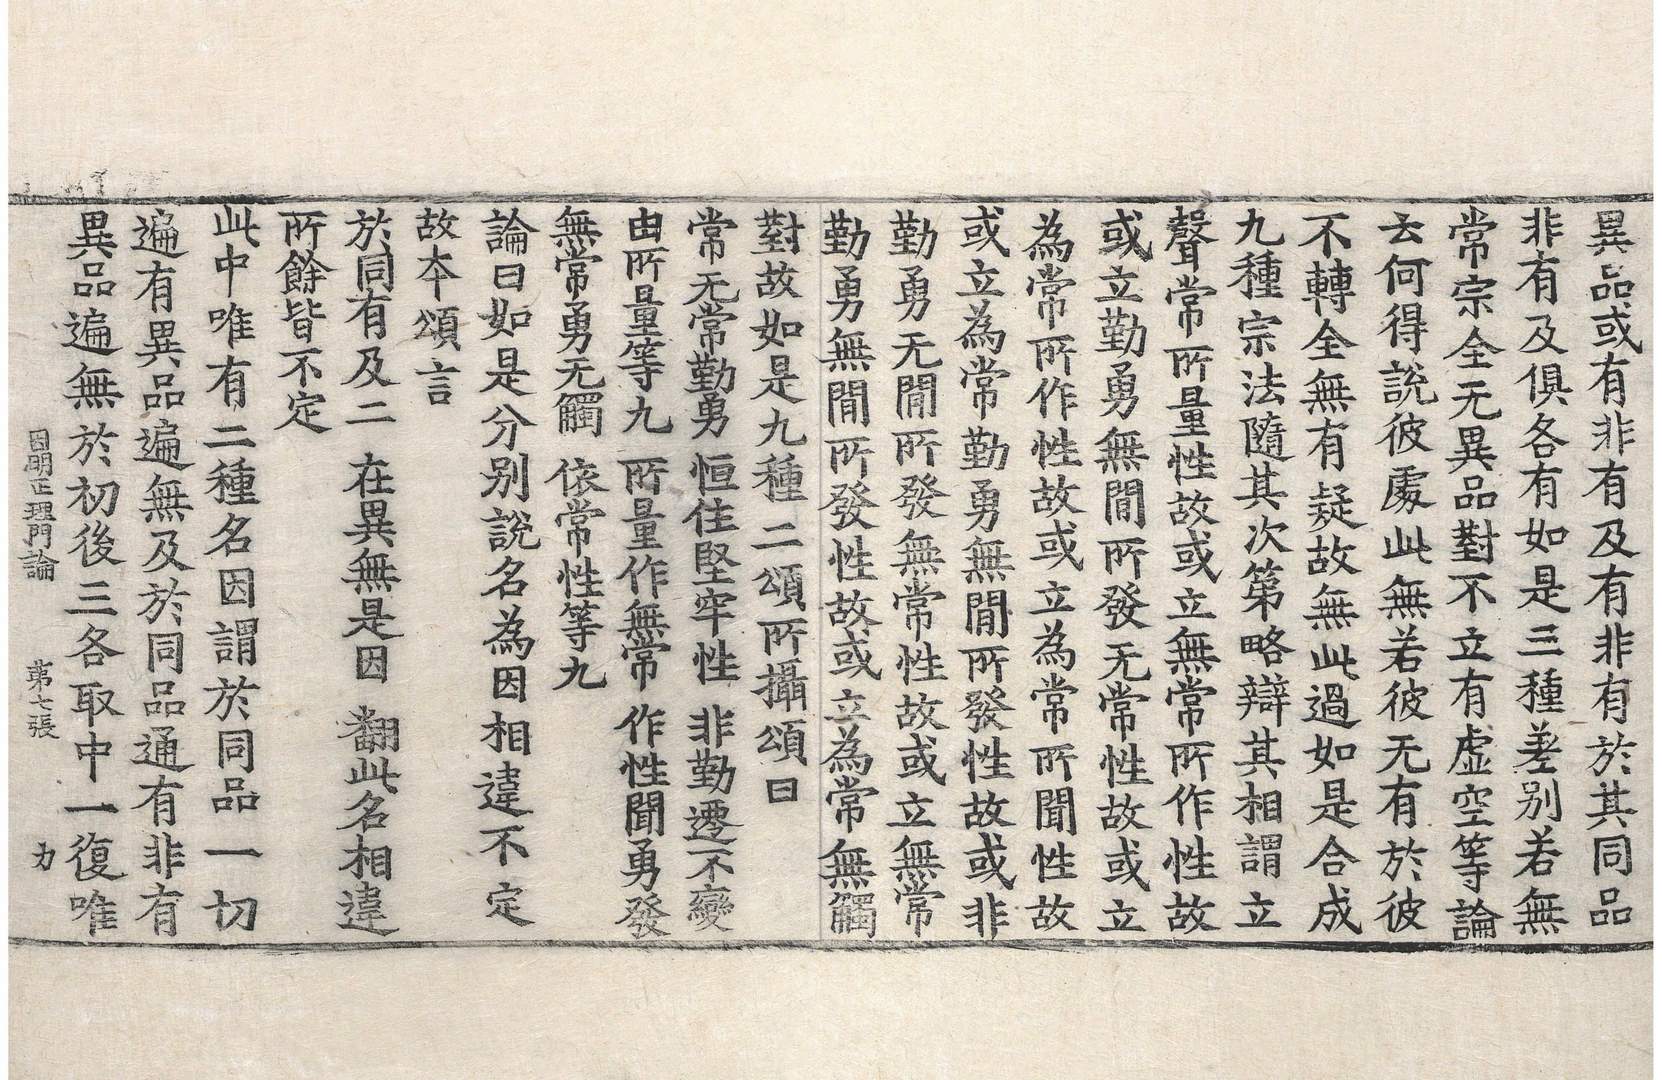 異品或有非有及有非有於其同品
非有及俱各有如是三種差別若無
常宗全无異品對不立有虛空等論
云何得說彼處此無若彼无有於彼
不轉全無有疑故無此過如是合成
九種宗法隨其次第略辯其相謂立
聲常所量性故或立無常所作性故
或立勤勇無閒所發无常性故或立
為常所作性故或立為常所聞性故
或立為常勤勇無閒所發性故或非
勤勇无閒所發無常性故或立無常
勤勇無閒所發性故或立為常無觸
對故如是九種二頌所攝頌曰
常无常勤勇 恒住堅牢性 非勤遷不變
由所量等九 所量作無常 作性聞勇發
無常勇无觸 依常性等九
論曰如是分別說名為因相違不定
故本頌言
於同有及二 在異無是因 翻此名相違
所餘皆不定
此中唯有二種名因謂於同品一切
遍有異品遍無及於同品通有非有
異品遍無於初後三各取中一復唯
因明正理門論 第七張 力